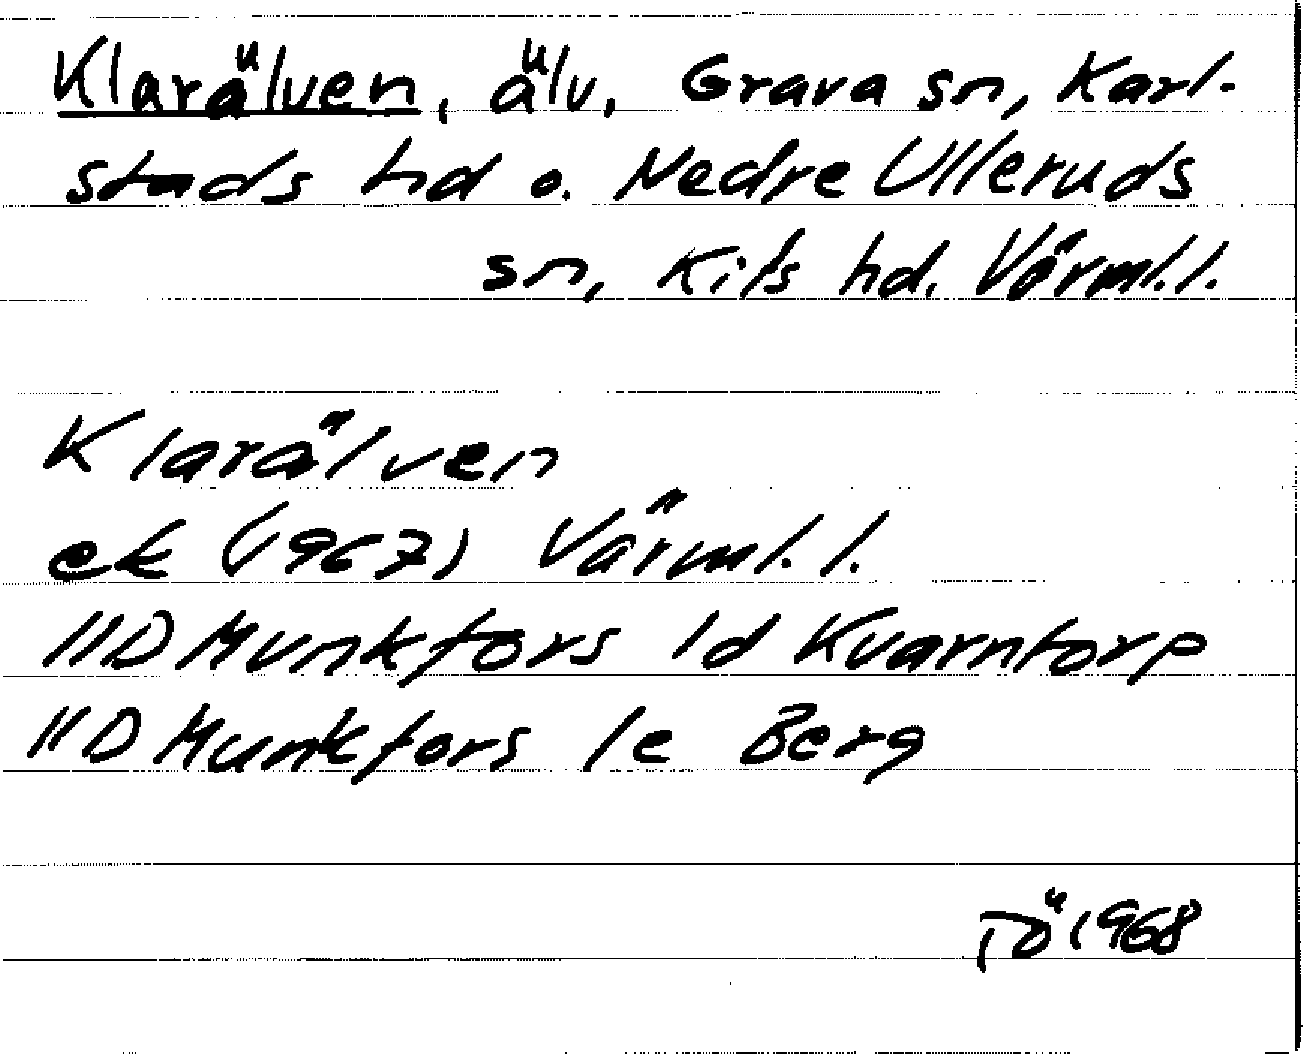 Klarälven, älv, Grava sn, Karl-
stads hd o. Nedre Ulleruds
sn, Kils hd. Värml.l.
Klarälven
ek (1967) Värml.l.
11D Munkfors 1d Kvarntorp
11D Munkfors 1e Berg
TÖ 1968